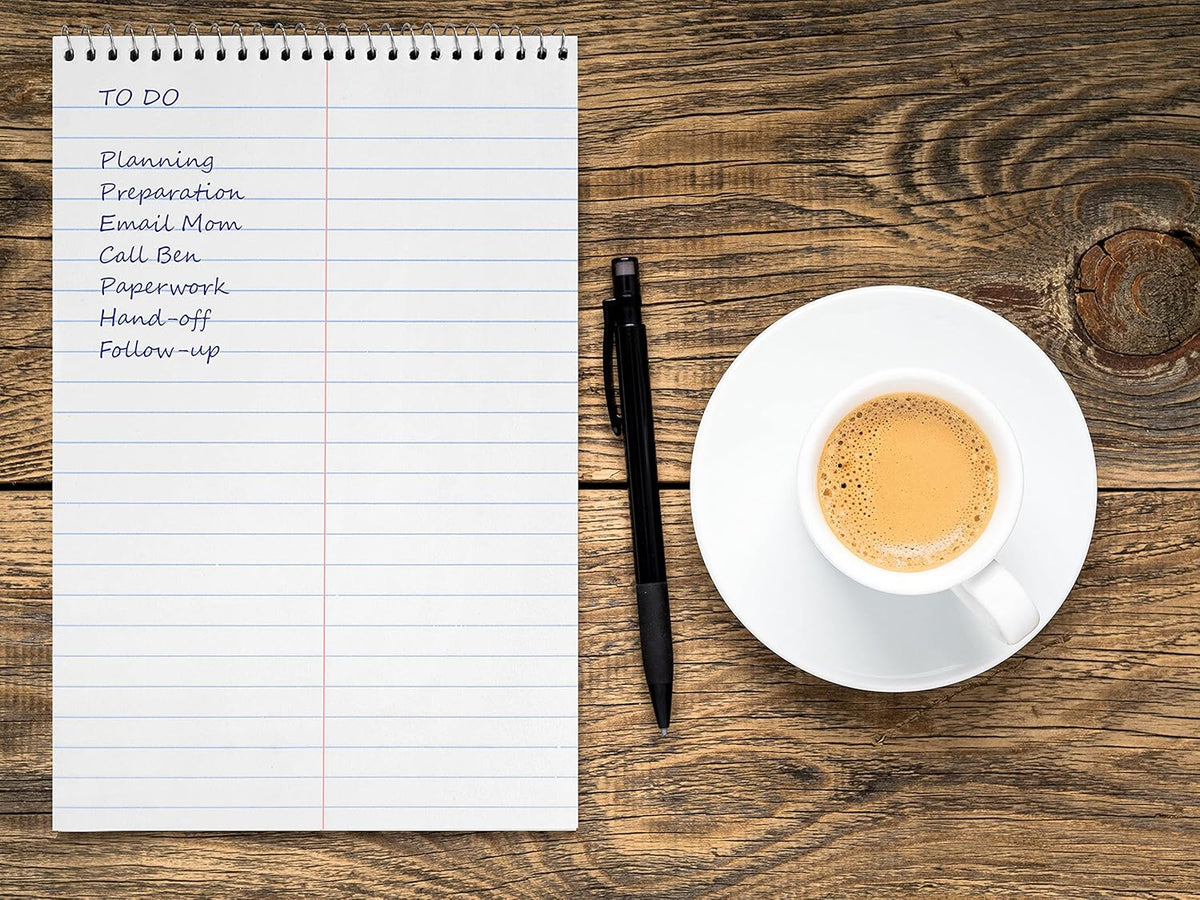 TO DO
Planning
Preparation
Email Mom
Call Ben
Paperwork
Hand-off
Follow-up